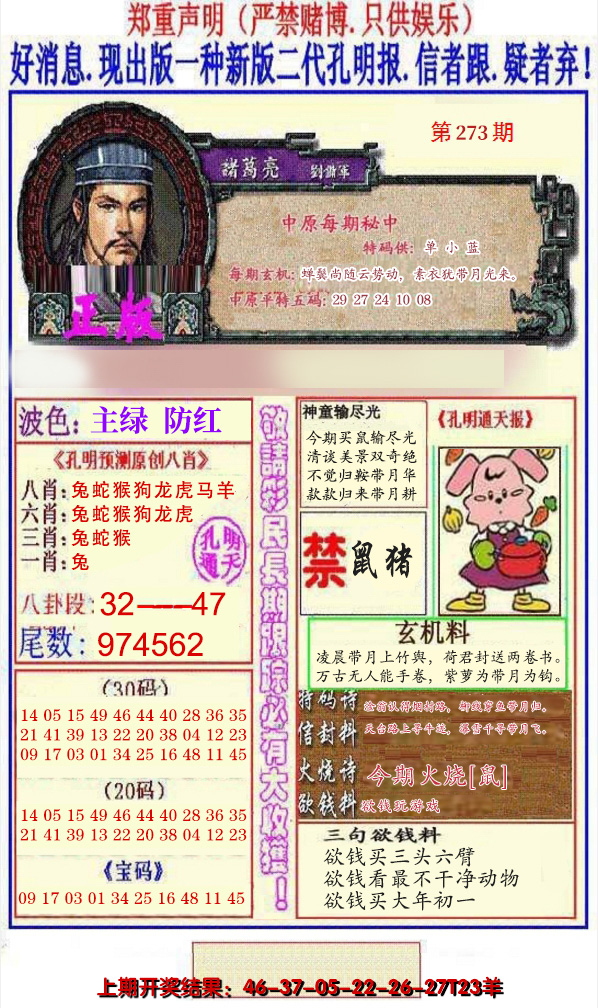 郑重声明（严禁赌博.只供娱乐）
好消息.现出版一种新版二代孔明报.信者跟.疑者弃！
第273期
諸葛亮 劉備軍
中原每期秘中
特码供：单 小 蓝
每期玄机：蝉鬓尚随云势动，素衣犹带月光来。
中原平特五码：29 27 24 10 08
正版
波色：主绿 防红
《孔明预测原创八肖》
八肖：兔蛇猴狗龙虎马羊
六肖：兔蛇猴狗龙虎
三肖：兔蛇猴
一肖：兔
孔明
通天
八卦段：32——47
尾数：974562
（30码）
14 05 15 49 46 44 40 28 36 35
21 41 39 13 22 20 38 04 12 23
09 17 03 01 34 25 16 48 11 45
（20码）
14 05 15 49 46 44 40 28 36 35
21 41 39 13 22 20 38 04 12 23
《宝码》
09 17 03 01 34 25 16 48 11 45
敬請彩民長期跟踪必有大收獲！
神童输尽光
今期买鼠输尽光
清谈美景双奇绝
不觉归鞍带月华
款款归来带月耕
《孔明通天报》
禁 鼠猪
玄机料
凌晨带月上竹舆，荷君封送两卷书。
万古无人能手卷，紫萝为带月为钩。
特码诗
信封料
火烧诗 今期火烧[鼠]
欲钱料 欲钱玩游戏
三句欲钱料
欲钱买三头六臂
欲钱看最不干净动物
欲钱买大年初一
上期开奖结果：46-37-05-22-26-27T23羊